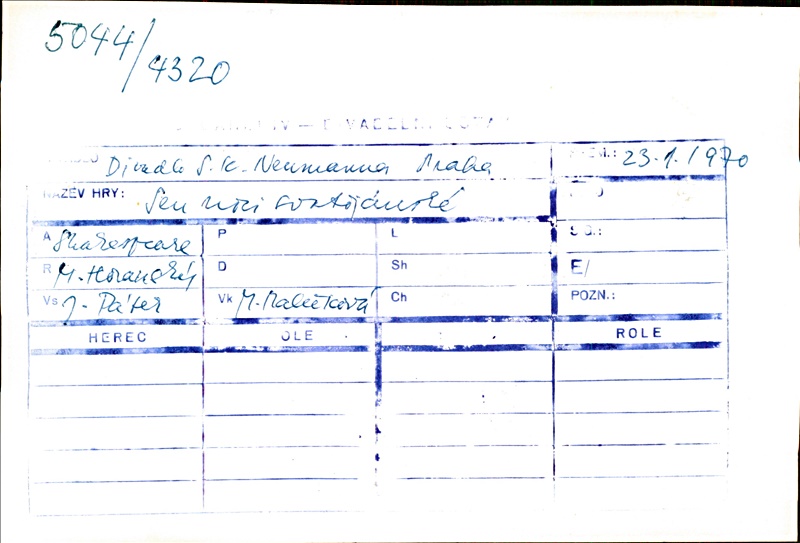 5044/
4320
Divadlo S. K. Neumanna Praha
23.1.1970
NÁZEV HRY: Sen noci svatojánské
A Shakespeare P L
R M. Horanský D Sh E/
Vs J. Páter Vk M. Ch POZN.:
HEREC ROLE